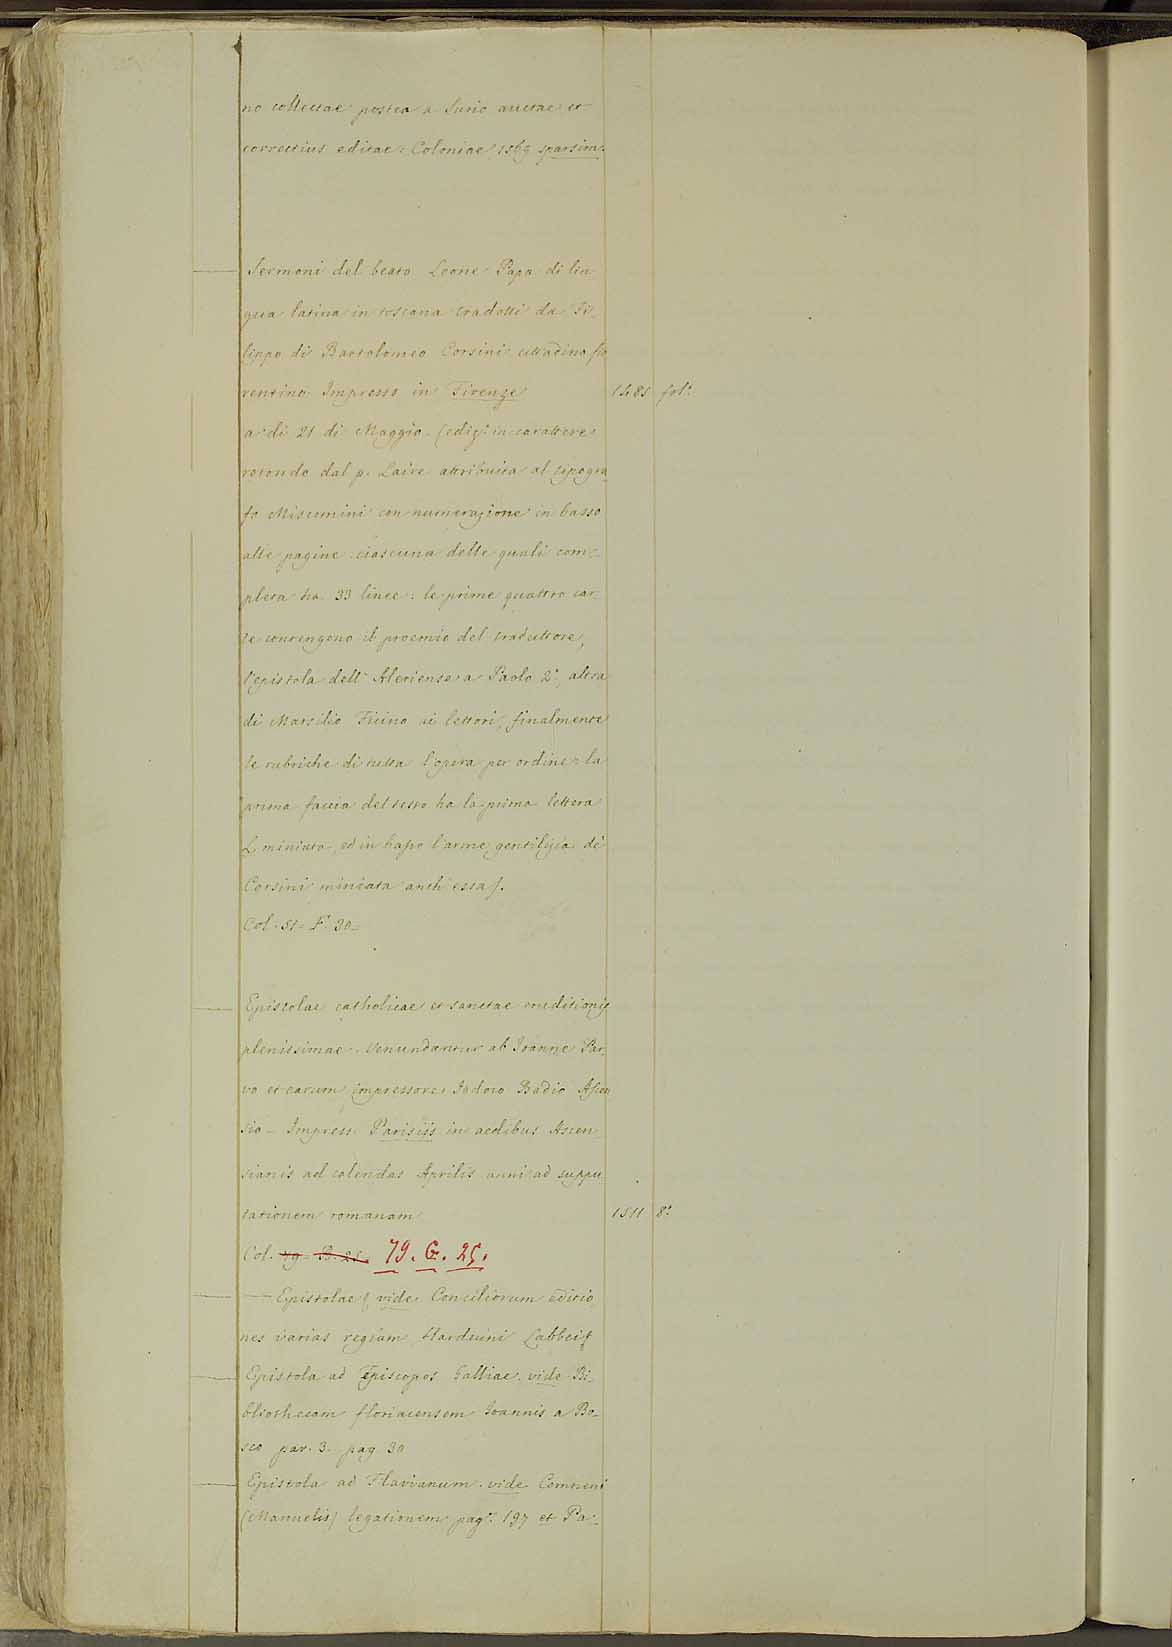 no collectae postea a Surio auctae et
correctius editae: Coloniae 1569 sparsim.
— Sermoni del beato Leone Papa di lin-
gua latina in toscana tradotti da Fi-
lippo di Bartolomeo Corsini cittadino fio
rentino Impresso in Firenze 1485 fol.°
a di 21 di Maggio. (ediz. in carattere
rotondo dal p. Laire attribuita al tipogra
fo Miscomini con numerazione in basso
alle pagine ciascuna delle quali com-
pleta ha 33 linee: le prime quattro car-
te contengono il proemio del traduttore,
l'epistola dell'Aleriense a Paolo 2.°, altra
di Marsilio Ficino ai lettori, finalmente
le rubriche di tutta l'opera per ordine: la
prima faccia del testo ha la prima lettera
L miniata, ed in basso l'arme gentilizia de
Corsini miniata anch'essa).
Col. 51. F. 30-
— Epistolae catholicae et sanctae eruditionis
plenissimae. Venundantur ab Ioanne Par
vo et earum impressore Iodoco Badio Ascen
sio - Impress. Parisiis in aedibus Ascen-
sianis ad calendas Aprilis anni ad suppu
tationem romanam 1511 8.°
Col. 79. G. 25.
— — Epistolae (vide Conciliorum editio
nes varias regiam Harduini Labbei)
— Epistola ad Episcopos Galliae. vide Bi-
bliothecam floriacensem Ioannis a Bo-
sco par. 3. pag 30
— Epistola ad Flavianum. vide Comneni
(Manuelis) legationem pag. 197 et Pa-